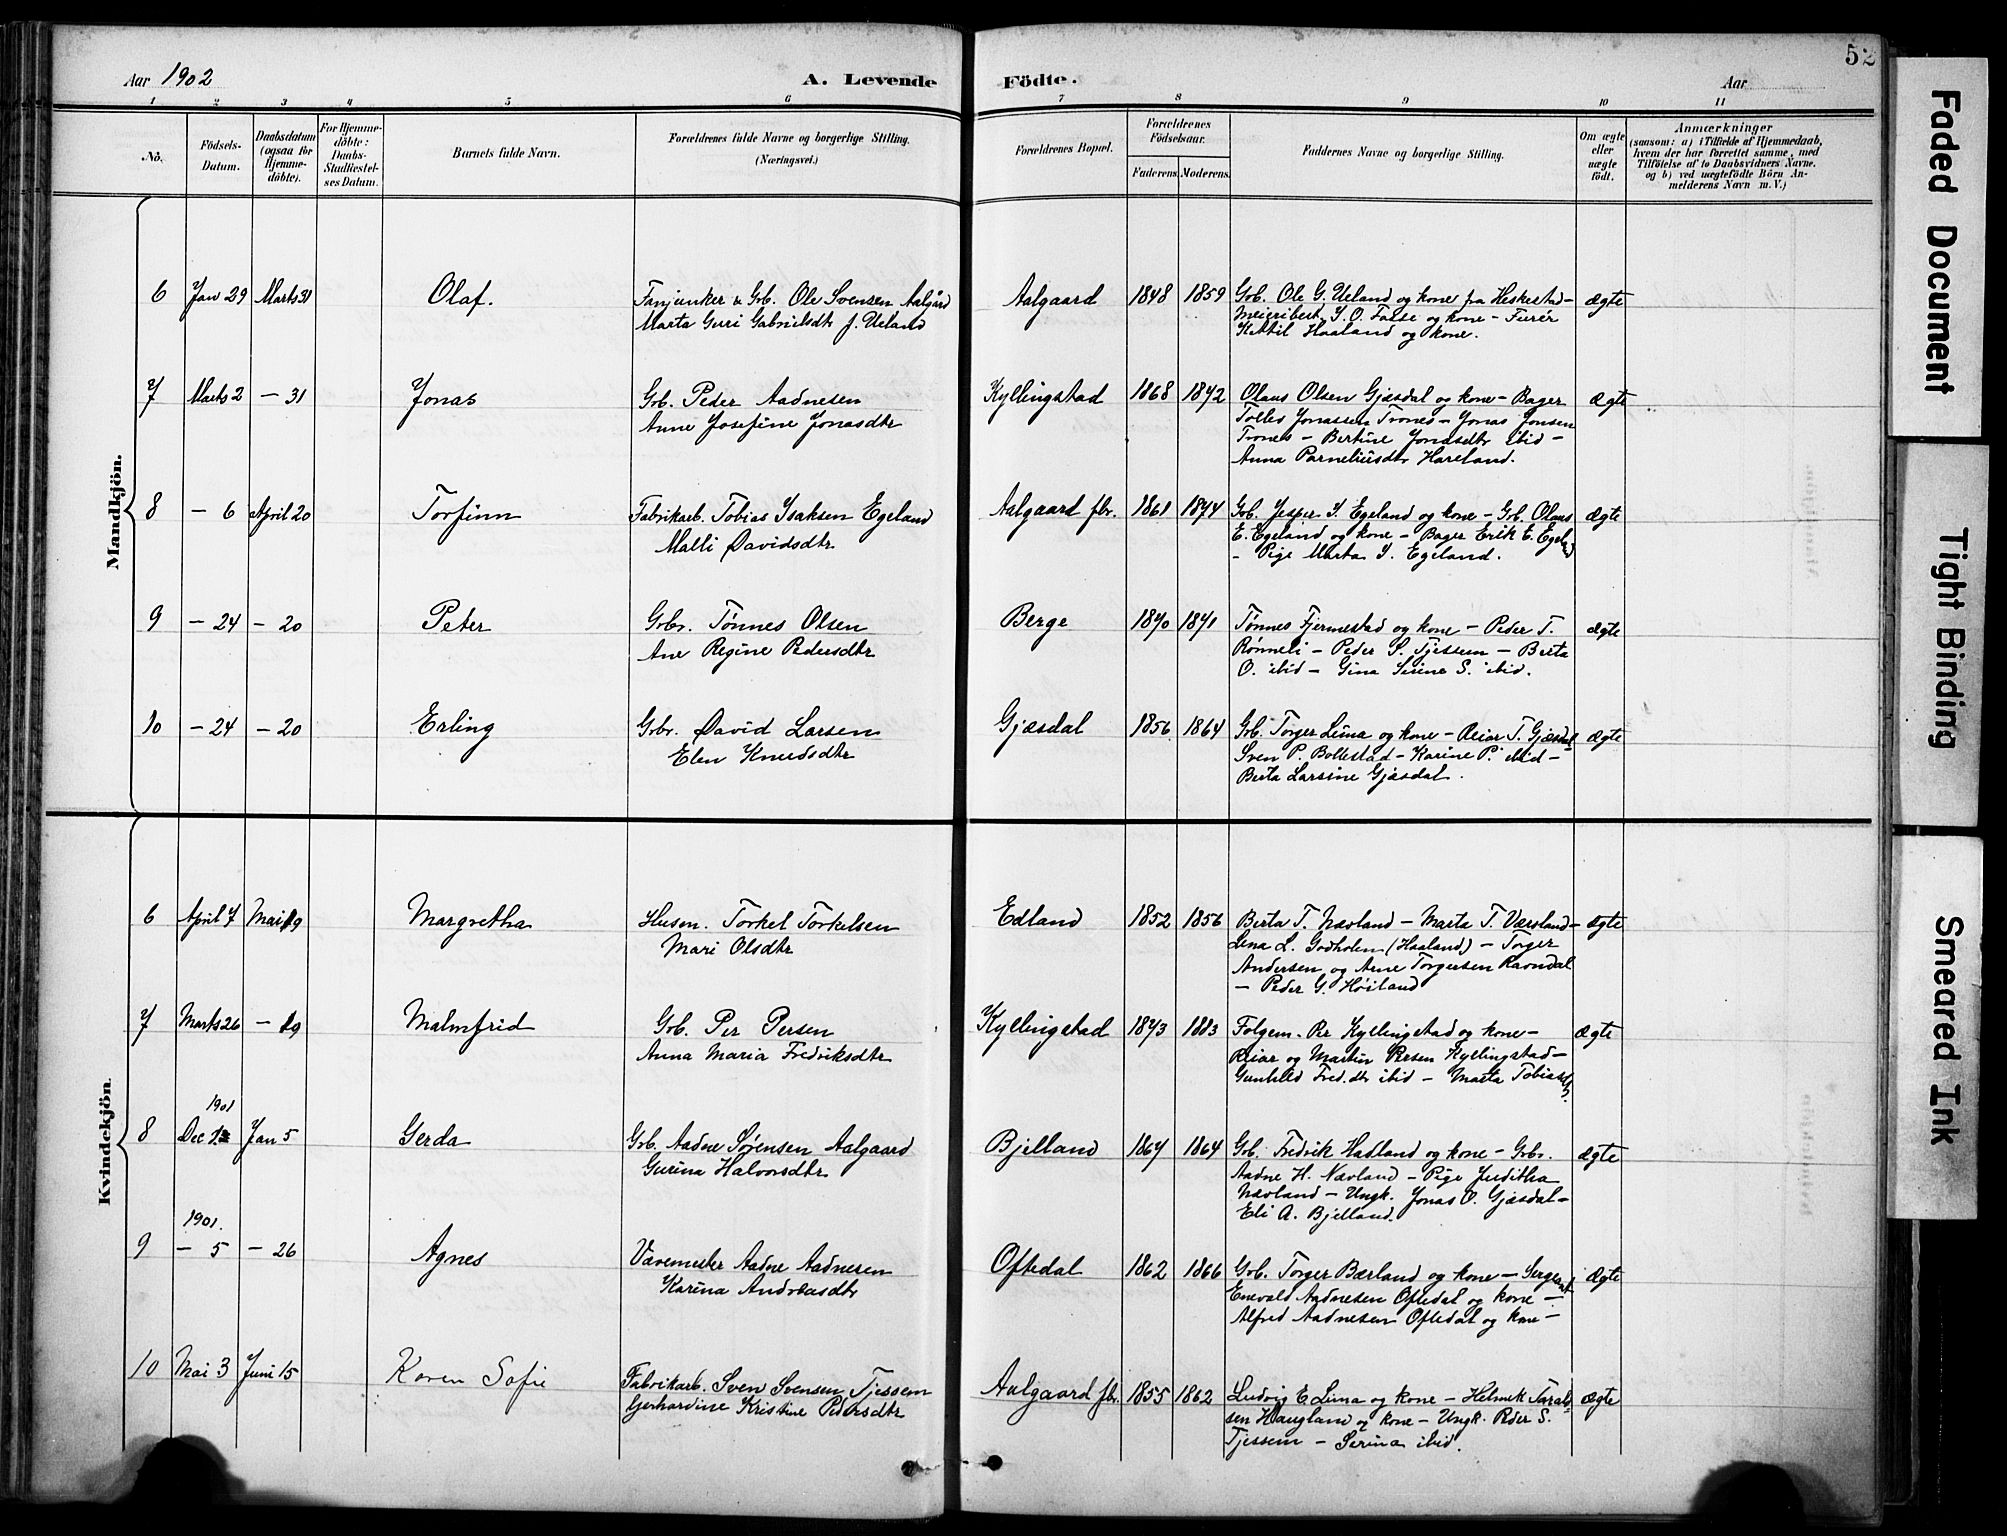 52
Aar 1902
A. Levende
Födte.
Aar
1 2 3 4 5 6 7 8 9 10 11
No.
Födsels-
Datum.
Daabsdatum
(ogsaa for
Hjemme-
döbte).
For Hjemme-
döbte:
Daabs-
Stadfæstel-
ses Datum.
Barnets fulde Navn.
Forældrenes fulde Navne og borgerlige Stilling.
(Næringsvei.)
Forældrenes Bopæl.
Forældrenes
Födselsaar.
Faderens. Moderens.
Faddernes Navne og borgerlige Stilling.
Om ægte
eller
uægte
födt.
Anmærkninger
(saasom: a) i Tilfælde af Hjemmedaab,
hvem der har forrettet samme, med
Tilföielse af to Daabsvidners Navne,
og b) ved uægtefödte Börn An-
melderens Navn m. V.)
Mandkjön.
6 Jan 29 Marts 31 Olaf. Fanjunker & Grb. Ole Svensen Aalgård
Marta Guri Gabrielsdtr f. Ueland
Aalgaard 1848 1859 Grb. Ole G. Ueland og kone fra Heskestad–
Meieribest. S. O. og kone – Furér
Kittil Haaland og kone.
ægte
7 Marts 2 – 31 Jonas Grb. Peder Aadnesen
Anne Josefine Jonasdtr
Kyllingstad 1868 1872 Olaus Olsen Gjæsdal og kone – Bager
Tolles Jonassen Trones – Jonas Jonsen
Trones – Bertine Jonasdtr ibid –
Anna Parneliusdtr Hareland.
ægte
8 – 6 April 20 Torfinn Fabrikarb. Tobias Isaksen Egeland
Malli Davidsdtr
Aalgaard fbr. 1861 1874 Grb. Jesper I. Egeland og kone – Grb. Olaus
E. Egeland og kone – Bager Erik E. Egeland
– Pige Marta I. Egeland.
ægte
9 – 24 – 20 Peter Grbr. Tønnes Olsen
Ane Regine Pedersdtr
Berge 1870 1871 Tønnes Fjermestad og kone – Peder T.
Rønneli – Peder S. Tjessem – Berta
O. ibid – Gina Serine S. ibid.
ægte
10 – 24 – 20 Erling Grbr. David Larsen
Elen Knudsdtr
Gjæsdal 1856 1864 Grb. Torger Lima og kone – Reiar T. Gjæsdal
Sven P. Bollestad – Karine P. ibid –
Berta Larsine Gjæsdal.
ægte
Kvindekjön.
6 April 7 Mai 19 Margretha Husm. Torkel Torkelsen
Mari Olsdtr
Edland 1852 1856 Berta T. Nævland – Marta T. Værsland –
Lena L. Godholen (Haaland) – Torger
Andersen og Arne Torgersen Ravndal
– Peder G. Høiland
ægte
7 Marts 26 – 19 Malmfrid Grb. Per Persen
Anna Maria Fredriksdtr
Kyllingstad 1873 1883 Folgem. Per Kyllingstad og kone –
Reiar og Martin Persen Kyllingstad –
Gunhild Fred.dtr ibid – Marta Tobiasd.
ægte
1901
8 Dec Jan 5 Gerda Grb. Aadne Sørensen Aalgaard
Gurina Halvorsdtr
Bjelland 1867 1864 Grb. Fredrik Hadland og kone – Grbr.
Aadne H. Nævland – Pige Juditha
Nævland – Ungk. Jonas O. Gjæsdal –
Eli A. Bjelland.
ægte
1901.
9 – 5 – 26 Agnes Vævemester Aadne Aadnesen
Karina Andreasdtr
Oftedal 1862 1866 Grb. Torger Bærland og kone – Sergeant
Enevald Aadnesen Oftedal og kone –
Alfred Aadnesen Oftedal og kone –
ægte
10 Mai 3 Juni 15 Karen Sofie Fabrikarb. Sven Svensen Tjessem
Gerhardine Kristine Pedersdtr
Aalgaard fbr. 1855 1862 Ludvig E Lima og kone – Helmik Tarald-
sen Haugland og kone – Ungk. Peder S.
Tjessem – Serina ibid.
ægte
Faded Document
Tight Binding
Smeared Ink